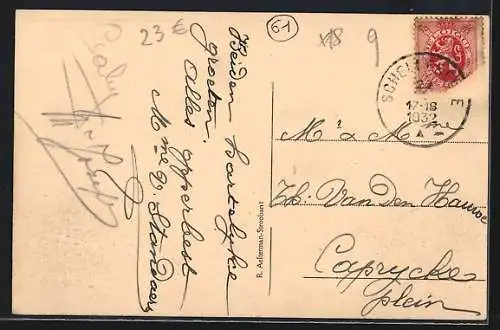 23€
61
x18
9
Beiden hartelijke
groeten.
alles opperbest
Mme V. Standaert
R. Aelterman-Stroobant
SCHELD
17-18
1932
Mr & Mme
Th. Van Den Hauwe
Caprycke
plein